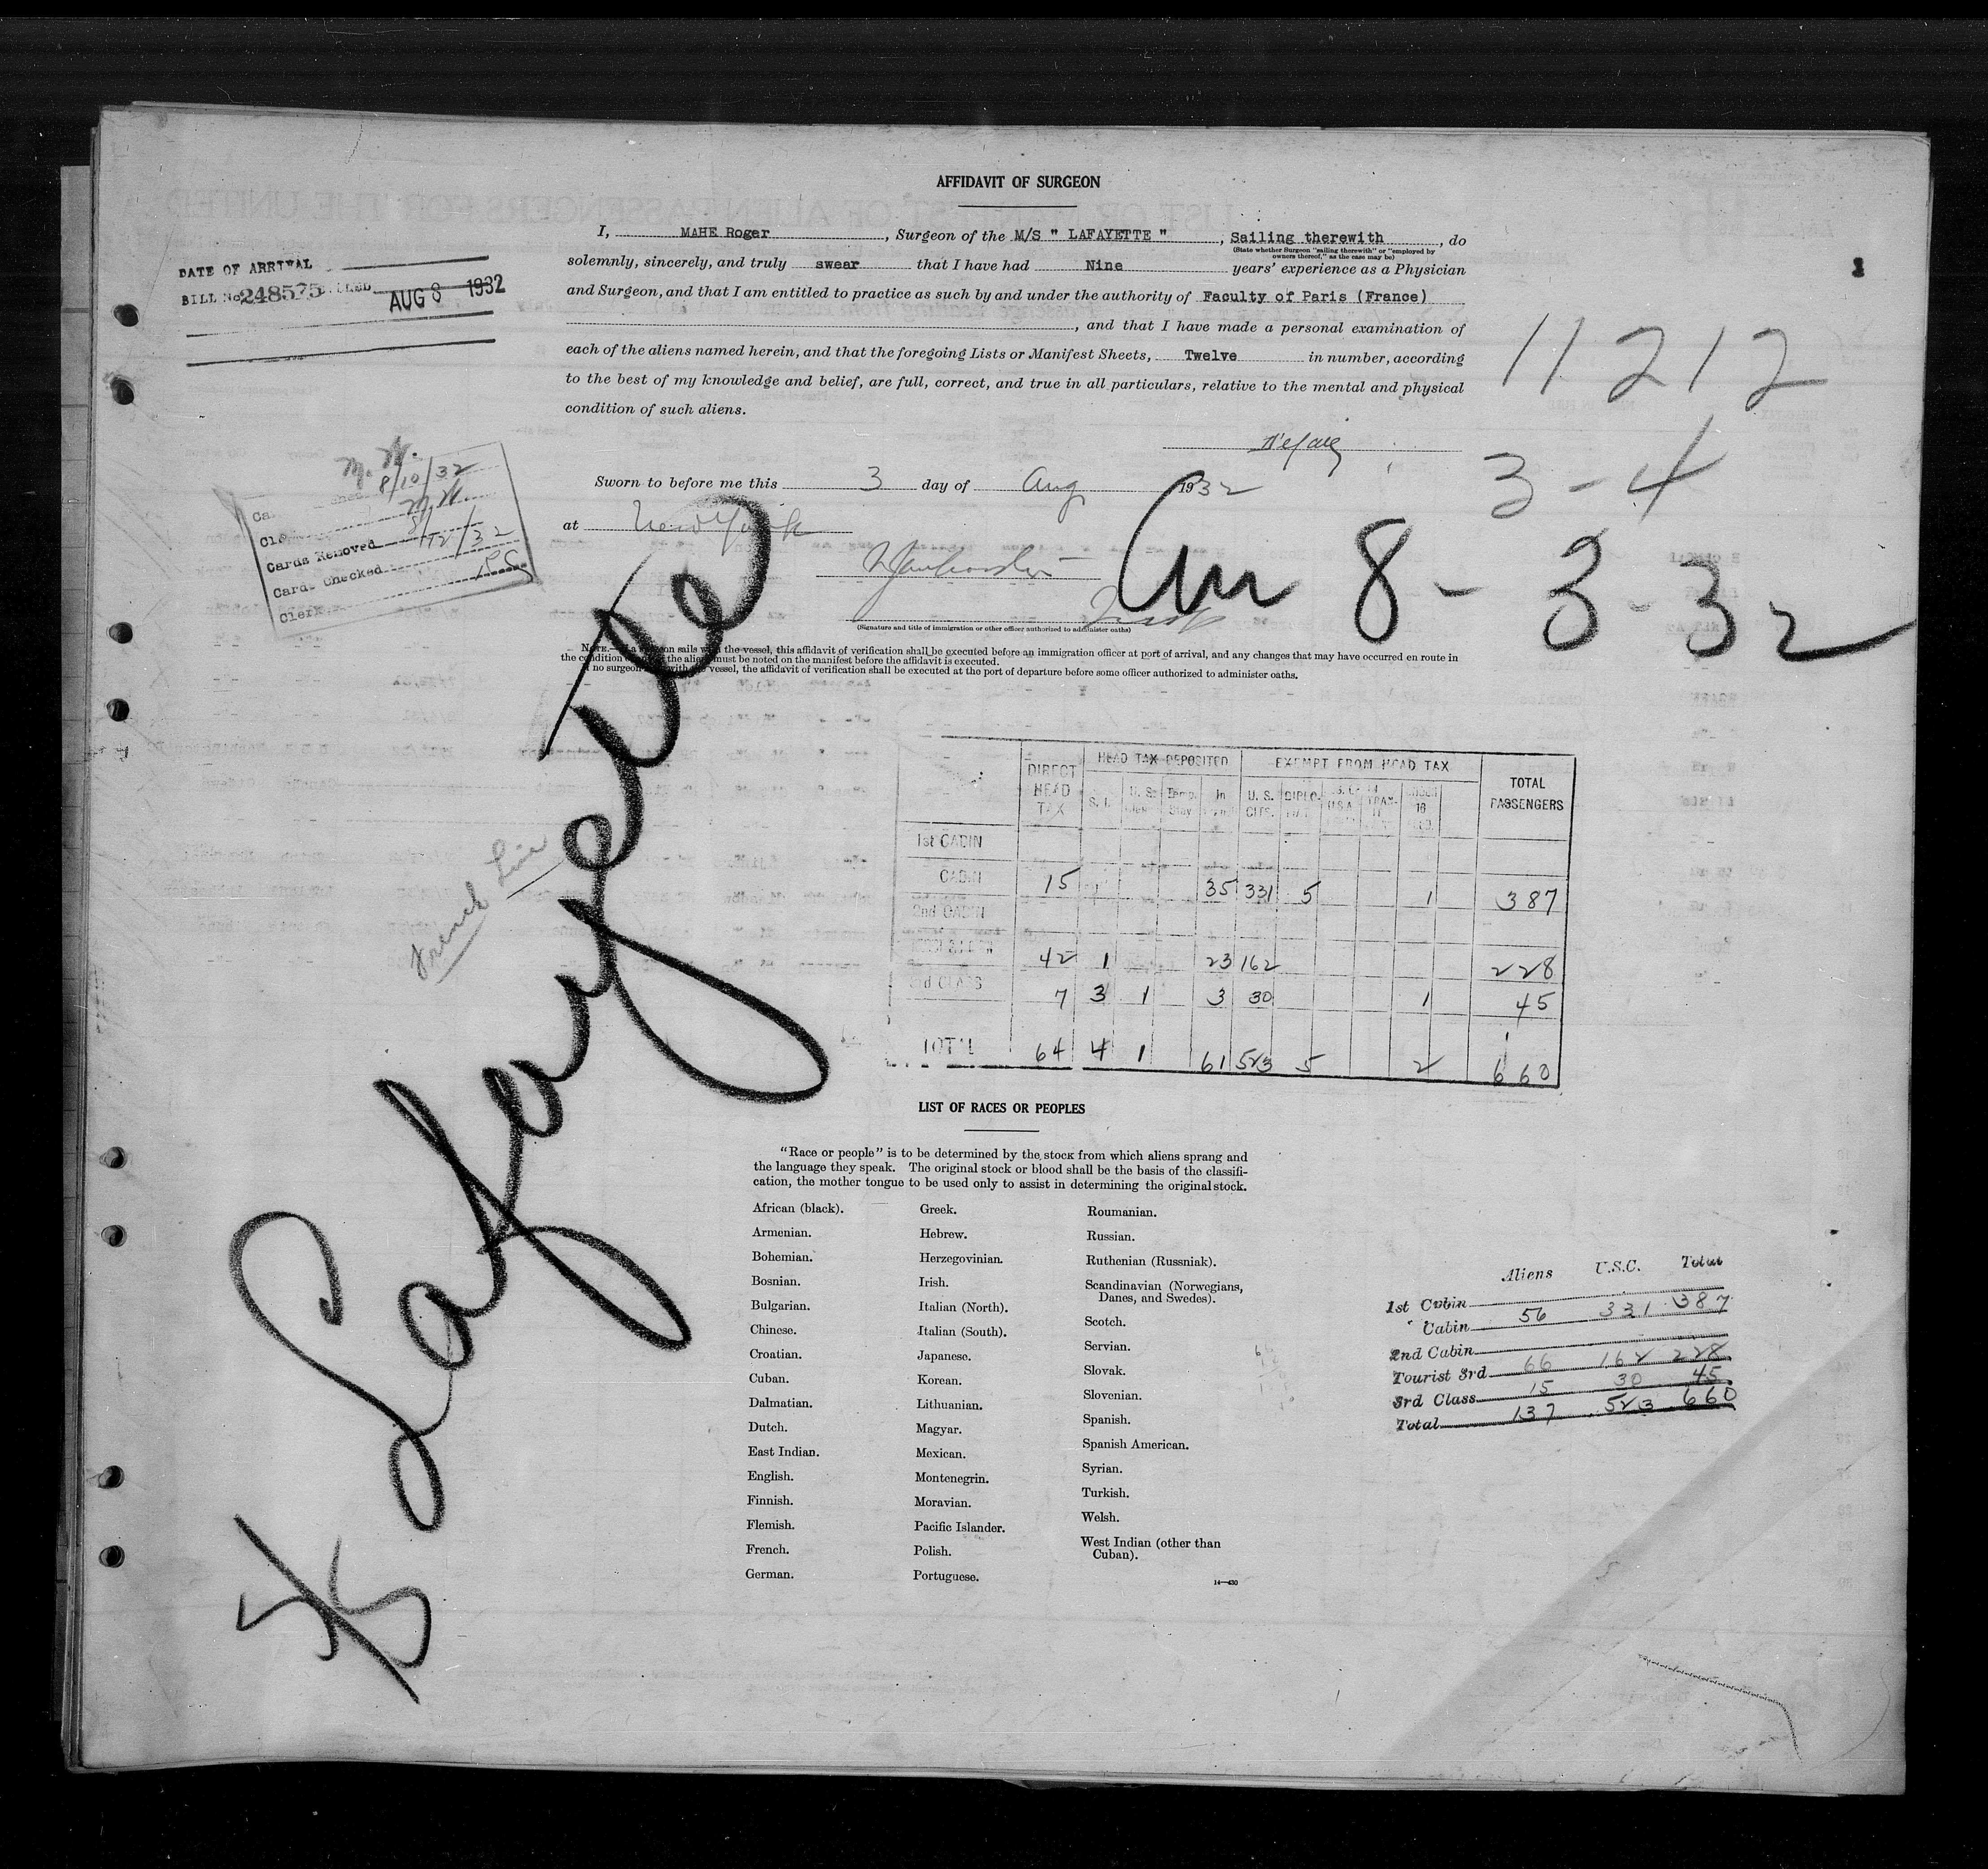 AFFIDAVIT OF SURGEON
I, MAHE Roger, Surgeon of the M/S " LAFAYETTE ", Sailing therewith, do
(State whether Surgeon "sailing therewith" or "employed by owners thereof," as the case may be)
solemnly, sincerely, and truly swear that I have had Nine years' experience as a Physician
and Surgeon, and that I am entitled to practice as such by and under the authority of Faculty of Paris (France)
, and that I have made a personal examination of
each of the aliens named herein, and that the foregoing Lists or Manifest Sheets, Twelve in number, according
to the best of my knowledge and belief, are full, correct, and true in all particulars, relative to the mental and physical
condition of such aliens.
Sworn to before me this 3 day of Aug 1932
at New York
(Signature and title of immigration or other officer authorized to administer oaths)
NOTE.—If a surgeon sails with the vessel, this affidavit of verification shall be executed before an immigration officer at port of arrival, and any changes that may have occurred en route in
the condition of the aliens must be noted on the manifest before the affidavit is executed.
If no surgeon sails with the vessel, the affidavit of verification shall be executed at the port of departure before some officer authorized to administer oaths.
DATE OF ARRIVAL
BILL No 248575 BILLED AUG 8 1932
M. W.
8/10/32
M.W.
Cards Removed 8/12/32
Cards Checked
Clerk
1
11212
3-4
8-3-32
S/S Lafayette
French Line
DIRECT HEAD TAX HEAD TAX DEPOSITED EXEMPT FROM HEAD TAX TOTAL PASSENGERS
S. I. U. S. Temp. Stay In U. S. CITS. DIPLO. U.S.A. TRAN- UNDER 16
1st CABIN
CABIN 15 1 35 331 5 1 387
2nd CABIN
42 1 23 162 228
3rd CLASS 7 3 1 3 30 1 45
TOTAL 64 4 1 61 523 5 2 660
LIST OF RACES OR PEOPLES
"Race or people" is to be determined by the stock from which aliens sprang and
the language they speak. The original stock or blood shall be the basis of the classifi-
cation, the mother tongue to be used only to assist in determining the original stock.
African (black).
Armenian.
Bohemian.
Bosnian.
Bulgarian.
Chinese.
Croatian.
Cuban.
Dalmatian.
Dutch.
East Indian.
English.
Finnish.
Flemish.
French.
German.
Greek.
Hebrew.
Herzegovinian.
Irish.
Italian (North).
Italian (South).
Japanese.
Korean.
Lithuanian.
Magyar.
Mexican.
Montenegrin.
Moravian.
Pacific Islander.
Polish.
Portuguese.
Roumanian.
Russian.
Ruthenian (Russniak).
Scandinavian (Norwegians,
Danes, and Swedes).
Scotch.
Servian.
Slovak.
Slovenian.
Spanish.
Spanish American.
Syrian.
Turkish.
Welsh.
West Indian (other than
Cuban).
14—430
Aliens U.S.C. Total
1st Cabin
Cabin 56 331 387
2nd Cabin
Tourist 3rd 66 162 228
3rd Class 15 30 45
Total 137 523 660